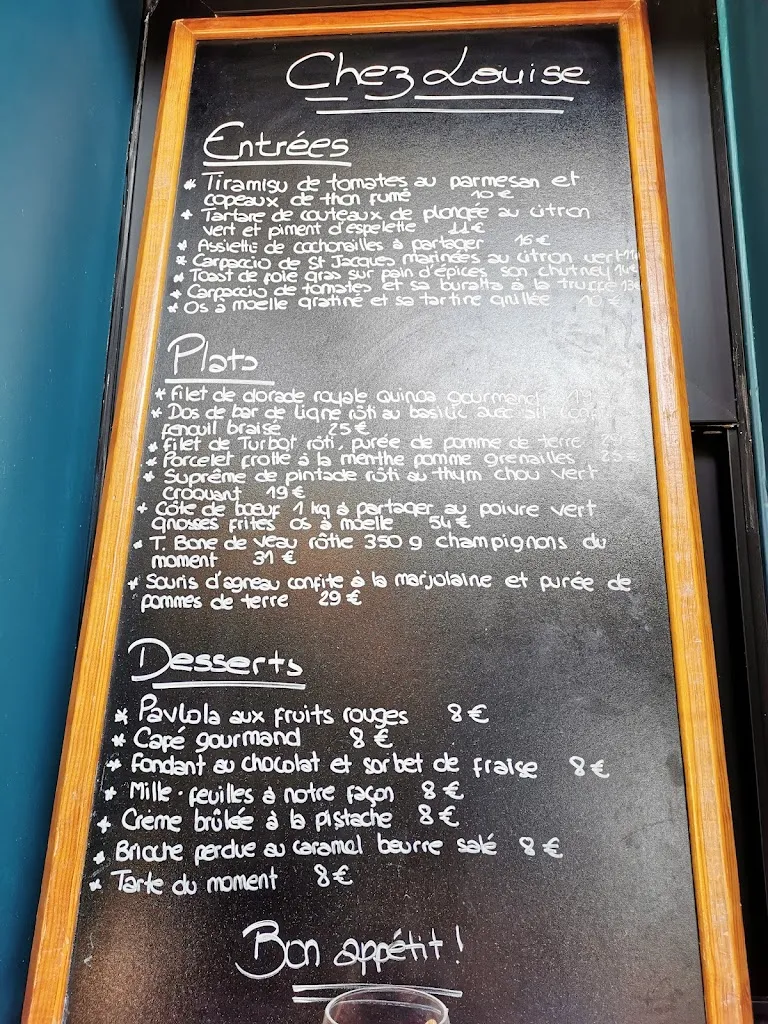 Chez Louise
Entrées
* Tiramisu de tomates au parmesan et
copeaux de thon fumé 10 €
* Tartare de couteaux de plongée au citron
vert et piment d'espelette 11 €
* Assiette de cochonailles à partager 16 €
* Carpaccio de St Jacques marinées au citron vert
* Toast de foie gras sur pain d'épices, son chutney
* Carpaccio de tomates et sa buratta à la truffe
* Os à moelle gratiné et sa tartine grillée 10 €
Plats
* Filet de dorade royale quinoa gourmand
* Dos de bar de ligne rôti au basilic avec ail
fenouil braisé 25 €
* Filet de Turbot rôti, purée de pomme de terre
* Porcelet frotté à la menthe pomme grenailles
* Suprême de pintade rôti au thym chou vert
croquant 19 €
* Côte de boeuf 1 kg à partager au poivre vert
grosses frites os à moelle 54 €
* T. Bone de veau rôtie 350 g champignons du
moment 31 €
* Souris d'agneau confite à la marjolaine et purée de
pommes de terre 29 €
Desserts
* Pavlola aux fruits rouges 8 €
* Café gourmand 8 €
* Fondant au chocolat et sorbet de fraise 8 €
* Mille-feuilles à notre façon 8 €
* Crème brûlée à la pistache 8 €
* Brioche perdue au caramel beurre salé 8 €
* Tarte du moment 8 €
Bon appétit !